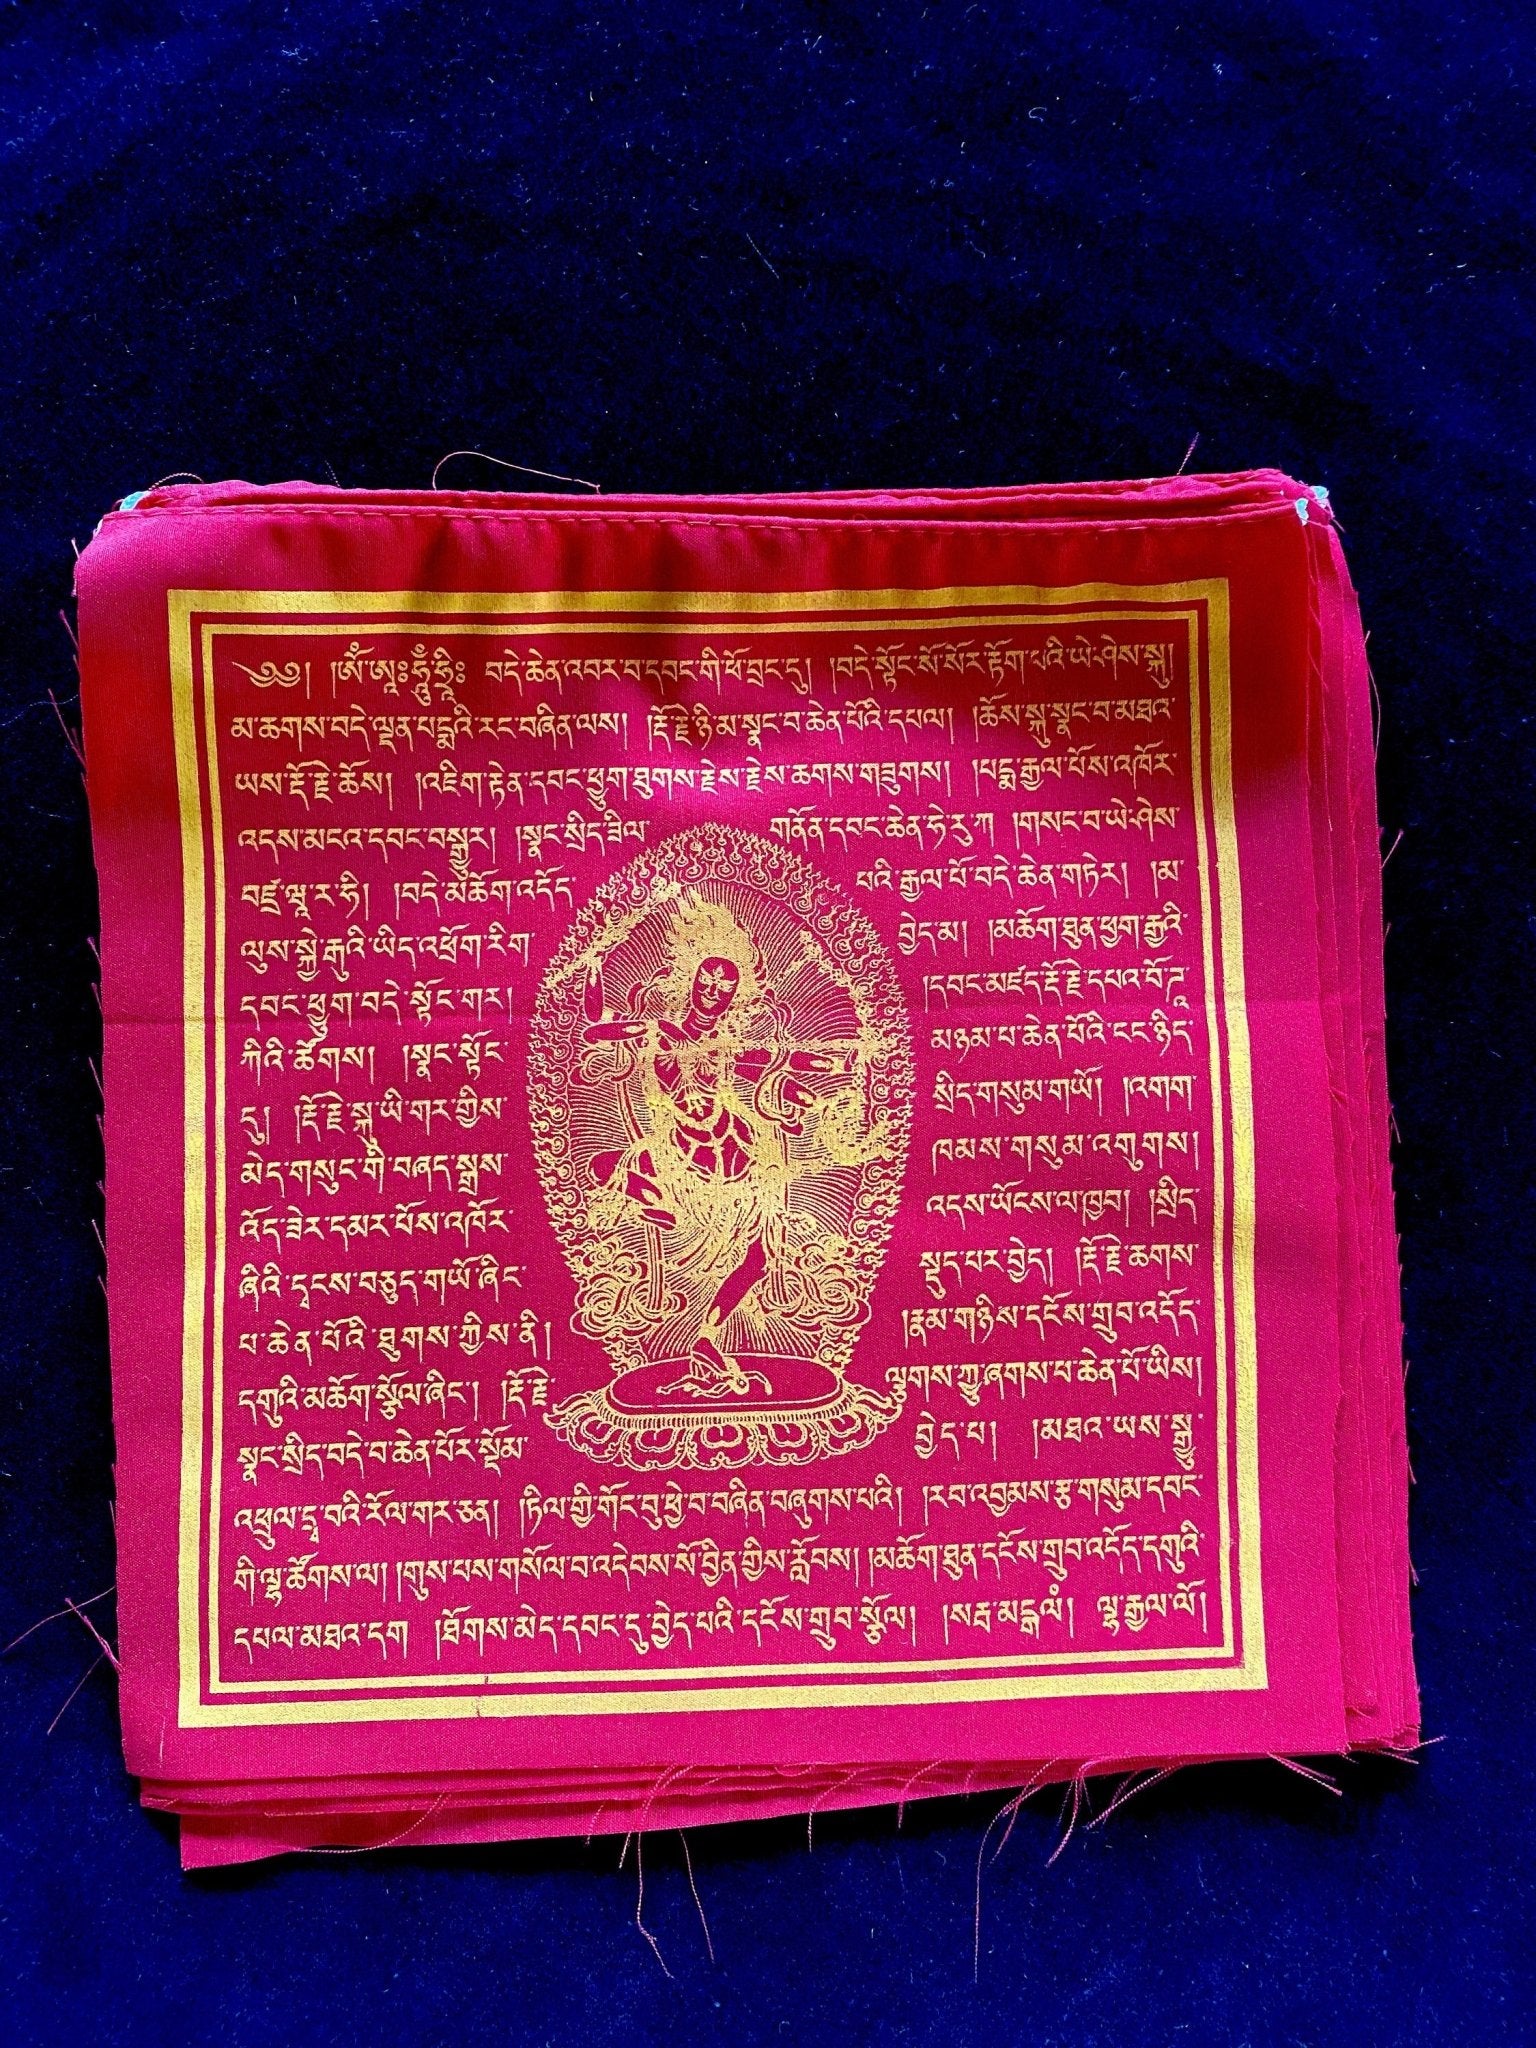 ༄༅། །ཨོཾ་ཨཱཿཧཱུྃ་ཧྲཱིཿ བདེ་ཆེན་འབར་བ་དབང་གི་ཕོ་བྲང་དུ། །བདེ་སྟོང་སོ་སོར་རྟོག་པའི་ཡེ་ཤེས་སྐུ།
མ་ཆགས་བདེ་ལྡན་པདྨའི་རང་བཞིན་ལས། །རྡོ་རྗེ་ཉི་མ་སྣང་བ་ཆེན་པོའི་དཔལ། །ཆོས་སྐུ་སྣང་བ་མཐའ་
ཡས་རྡོ་རྗེ་ཆོས། །འཇིག་རྟེན་དབང་ཕྱུག་ཐུགས་རྗེས་རྗེས་ཆགས་གཟུགས། །པདྨ་རྒྱལ་པོས་འཁོར་
འདས་མངའ་དབང་བསྒྱུར། །སྣང་སྲིད་ཟིལ་ གནོན་དབང་ཆེན་ཧེ་རུ་ཀ །གསང་བ་ཡེ་ཤེས་
བཛྲ་ཝཱ་ར་ཧི། །བདེ་མཆོག་འདོད་ པའི་རྒྱལ་པོ་བདེ་ཆེན་གཏེར། །མ་
ལུས་སྐྱེ་རྒུའི་ཡིད་འཕྲོག་རིག་ བྱེད་མ། །མཆོག་ཐུན་ཕྱག་རྒྱའི་
དབང་ཕྱུག་བདེ་སྟོང་གར། །དབང་མཛད་རྡོ་རྗེ་དཔའ་བོ་ཌཱ་
ཀིའི་ཚོགས། །སྣང་སྟོང་ མཉམ་པ་ཆེན་པོའི་ངང་ཉིད་
དུ། །རྡོ་རྗེ་སྐུ་ཡི་གར་གྱིས་ སྲིད་གསུམ་གཡོ། །འགག་
མེད་གསུང་གི་བཞད་སྒྲས་ ཁམས་གསུམ་འགུགས།
འོད་ཟེར་དམར་པོས་འཁོར་ འདས་ཡོངས་ལ་ཁྱབ། །སྲིད་
ཞིའི་དྭངས་བཅུད་གཡོ་ཞིང་ སྡུད་པར་བྱེད། །རྡོ་རྗེ་ཆགས་
པ་ཆེན་པོའི་ཐུགས་ཀྱིས་ནི། །རྣམ་གཉིས་དངོས་གྲུབ་འདོད་
དགུའི་མཆོག་སྩོལ་ཞིང་། །རྡོ་རྗེ་ ལྕུགས་ཀྱུ་ཞགས་པ་ཆེན་པོ་ཡིས།
སྣང་སྲིད་བདེ་བ་ཆེན་པོར་སྡོམ་ བྱེད་པ། །མཐའ་ཡས་སྒྱུ་
འཕྲུལ་དྲྭ་བའི་རོལ་གར་ཅན། །ཏིལ་གྱི་གོང་བུ་ཕྱེ་བ་བཞིན་བཞུགས་པའི། །རབ་འབྱམས་རྩ་གསུམ་དབང་
གི་ལྷ་ཚོགས་ལ། །གུས་པས་གསོལ་བ་འདེབས་སོ་བྱིན་གྱིས་རློབས། །མཆོག་ཐུན་དངོས་གྲུབ་འདོད་དགུའི་
དཔལ་མཐའ་དག །ཐོགས་མེད་དབང་དུ་བྱེད་པའི་དངོས་གྲུབ་སྩོལ། །སརྦ་མངྒལཾ། ལྷ་རྒྱལ་ལོ།